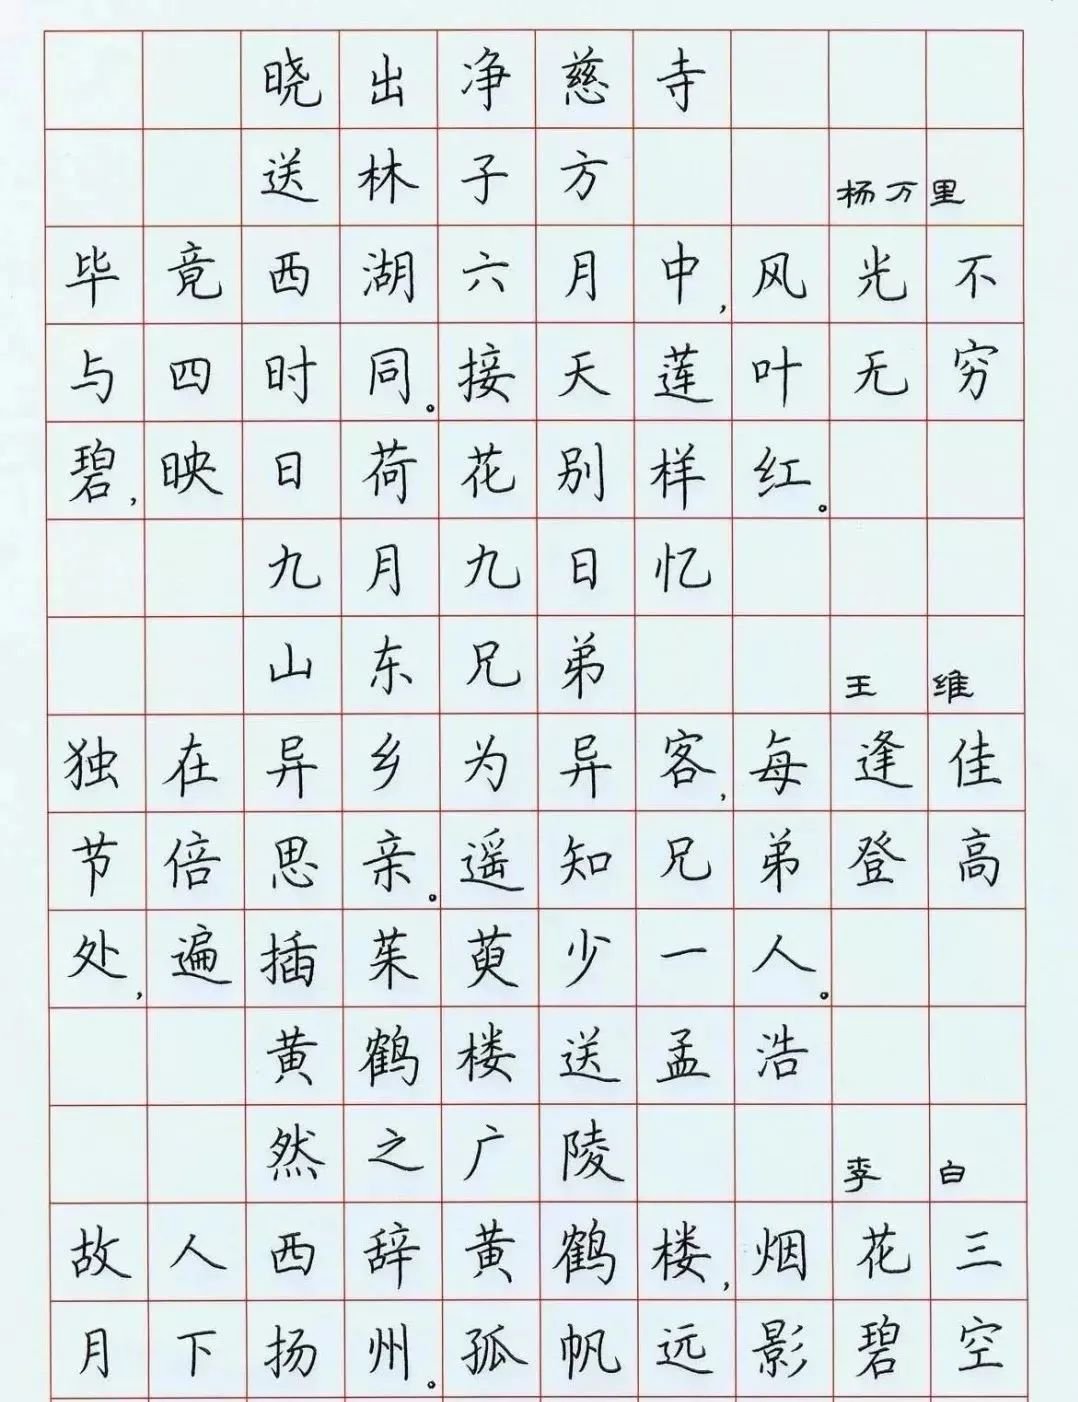 晓出净慈寺
送林子方 杨万里
毕竟西湖六月中,风光不
与四时同。接天莲叶无穷
碧,映日荷花别样红。
九月九日忆
山东兄弟 王维
独在异乡为异客,每逢佳
节倍思亲。遥知兄弟登高
处,遍插茱萸少一人。
黄鹤楼送孟浩
然之广陵 李白
故人西辞黄鹤楼,烟花三
月下扬州。孤帆远影碧空